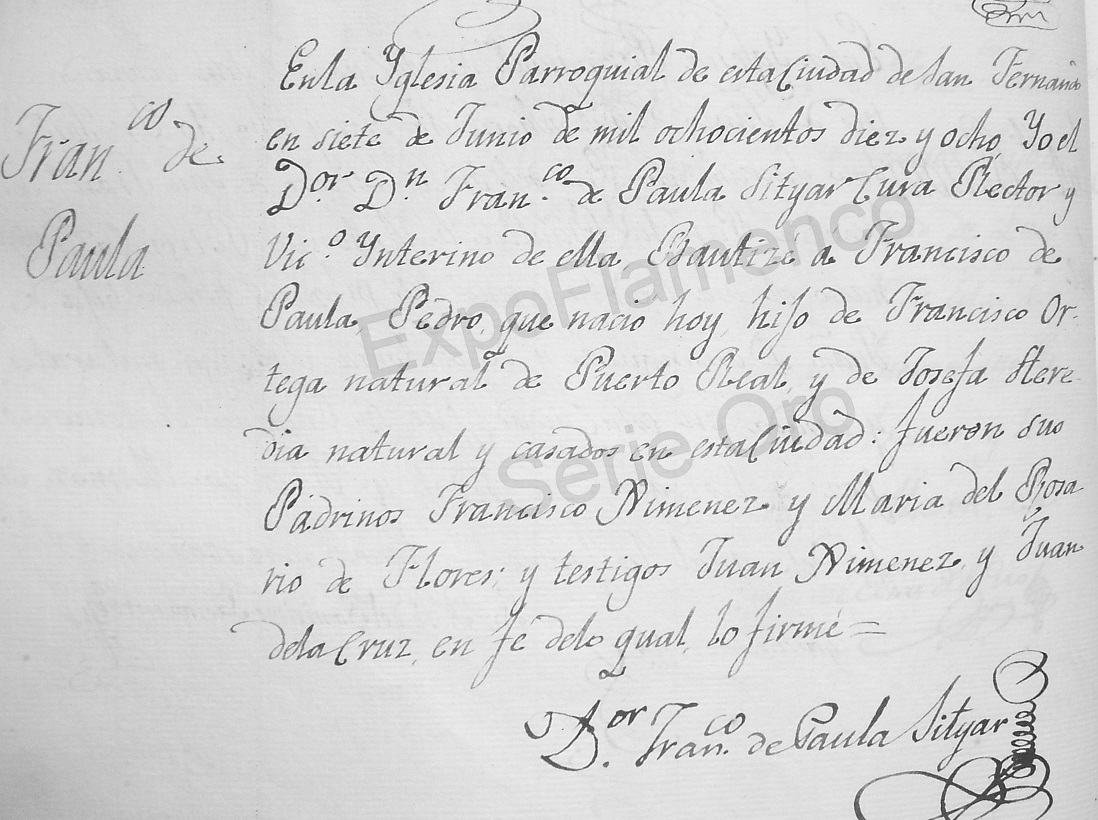 En la Yglesia Parroquial de esta Ciudad de San Fernando
en siete de Junio de mil ochocientos diez y ocho, Yo el
Dor. Dn. Franco. de Paula Sityar Cura Rector y
Vico. Ynterino de ella Bautizé á Francisco de
Paula, Pedro, que nació hoy, hijo de Francisco Or-
tega natural de Puerto Real, y de Josefa Here-
dia natural y casados en esta Ciudad: fueron sus
Padrinos Francisco Ximenez y Maria del Rosa
rio de Flores; y testigos Juan Ximenez, y Juan
de la Cruz, en fé de lo qual, lo firmé =
Dor. Franco. de Paula Sityar
Franco. de
Paula
ExpoFlamenco
Serie Oro